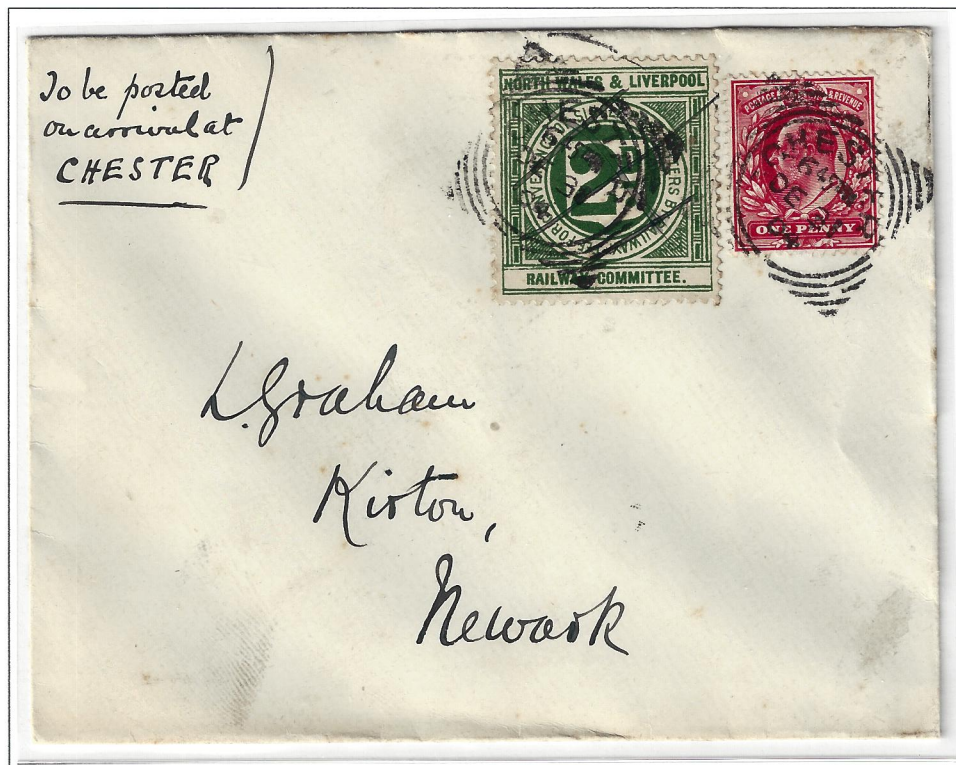 To be posted
on arrival at
CHESTER
NORTH WALES & LIVERPOOL
2
RAILWAY COMMITTEE.
POSTAGE & REVENUE
ONE PENNY
CHESTER
L. Graham
Kirton,
Newark